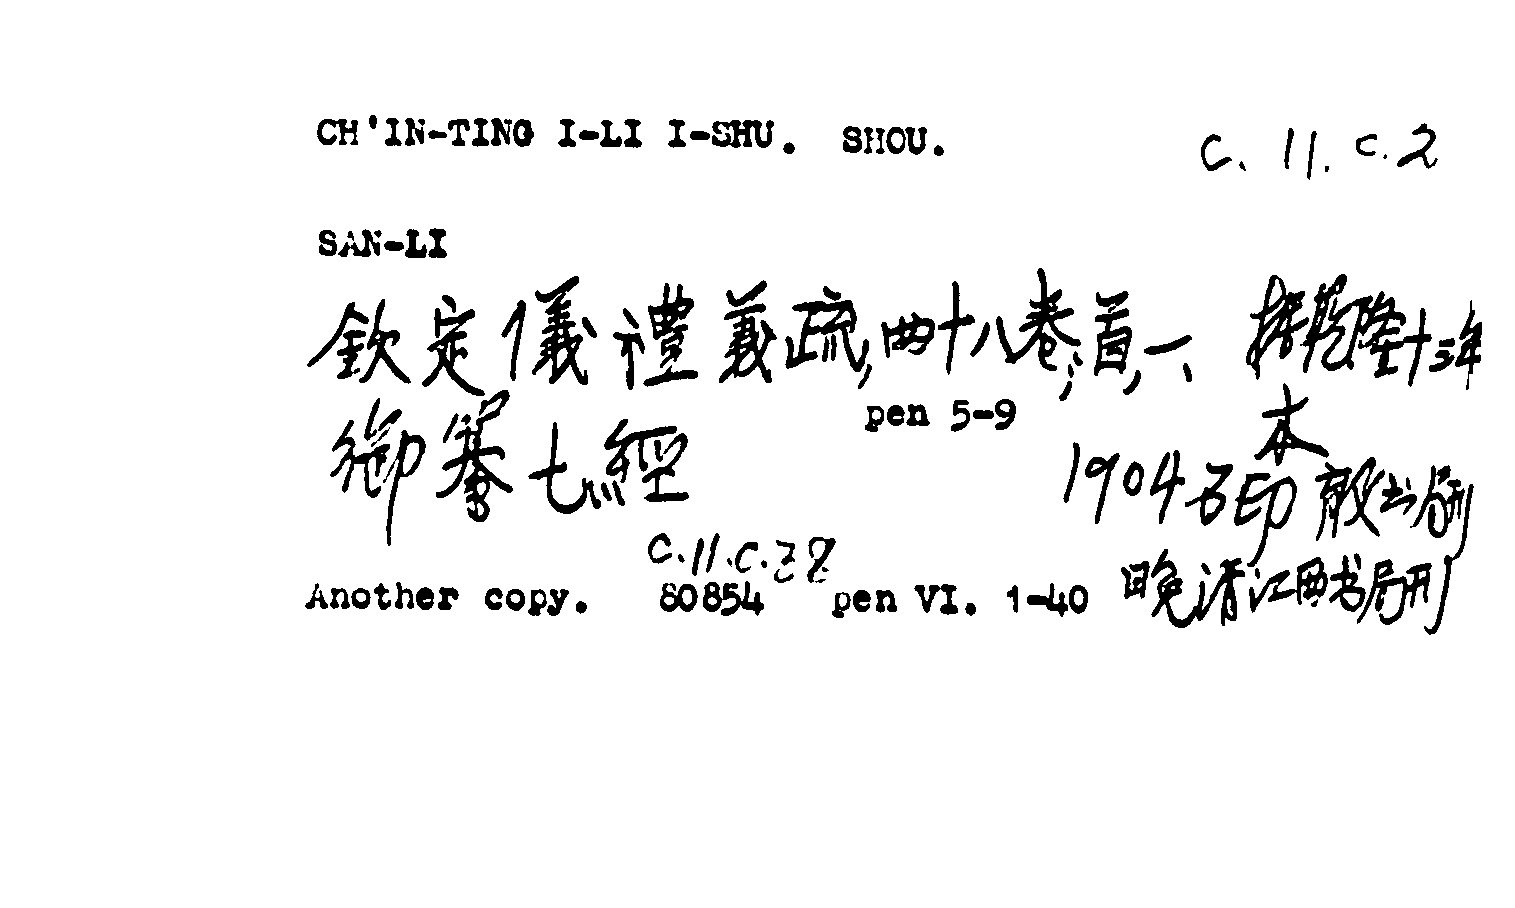 CH'IN-TING I-LI I-SHU. SHOU. C. 11. C. 2
SAN-LI
欽定儀禮義疏, 四十八卷; 首, 一、 據乾隆十三年
pen 5-9 本
御纂七經 1904石印 书局刊
C.11.C.28
Another copy. 80854 pen VI. 1-40 晚清江西书局刊